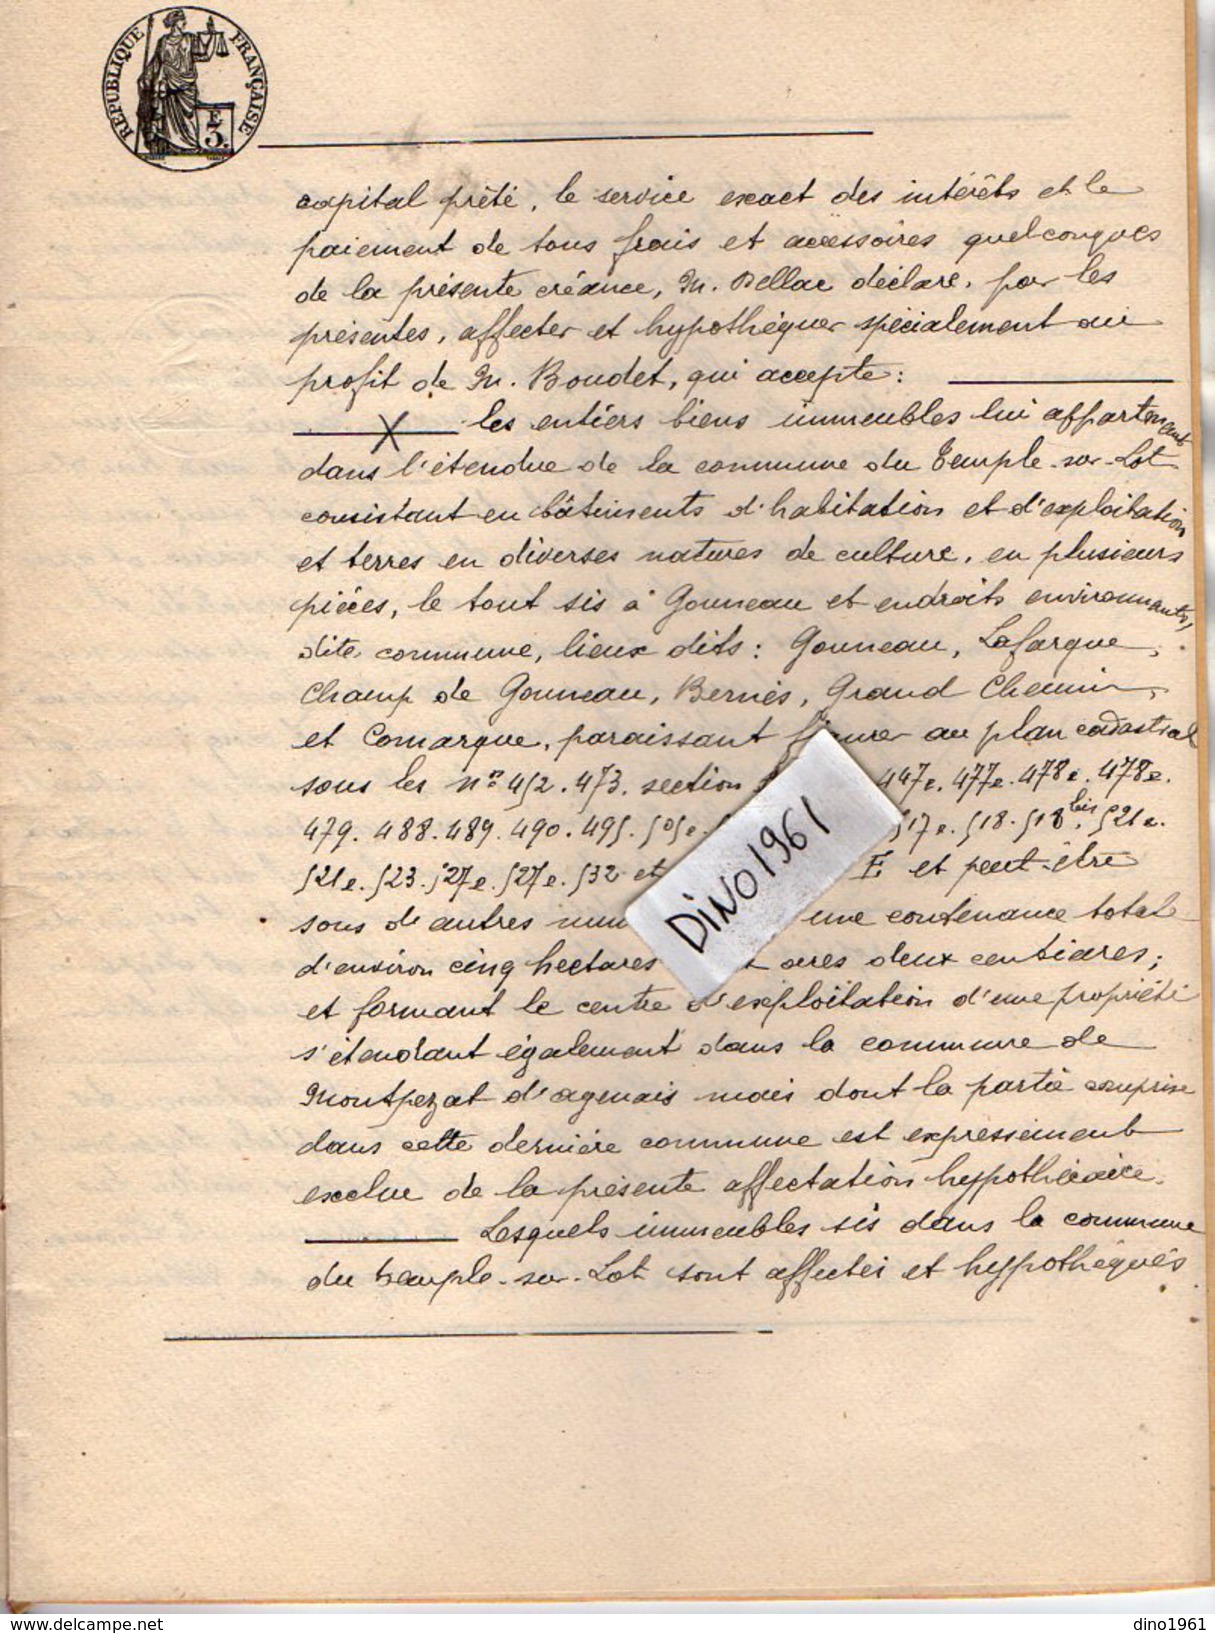 RÉPUBLIQUE FRANÇAISE
F
3.
capital prêté, le service exact des intérêts et le
paiement de tous frais et accessoires quelconques
de la présente créance, M. Dellac déclare, par les
présentes, affecter et hypothéquer spécialement au
profit de M. Boudet, qui accepte :
X les entiers biens immeubles lui appartenant
dans l'étendue de la commune du Temple-sur-Lot
consistant en bâtiments d'habitation et d'exploitation
et terres en diverses natures de culture, en plusieurs
pièces, le tout sis à Gouneau et endroits environnants,
dite commune, lieux dits : Gouneau, Lafargue,
Champ de Gouneau, Bernès, Grand Chemin,
et Comarque, paraissant figurer au plan cadastral
sous les nos 452. 473. section 447e. 477e. 478e. 478e.
479. 488. 489. 490. 495. 505e. 517e. 518. 518 bis. 521e.
521e. 523. 527e. 527e. 532 et E et peut-être
sous d'autres une contenance totale
d'environ cinq hectares ares deux centiares ;
et formant le centre d'exploitation d'une propriété
s'étendant également dans la commune de
Montpezat d'agenais mais dont la partie comprise
dans cette dernière commune est expressément
exclue de la présente affectation hypothécaire.
Lesquels immeubles sis dans la commune
du Temple-sur-Lot sont affectés et hypothéqués
DINO1961
www.delcampe.net
dino1961